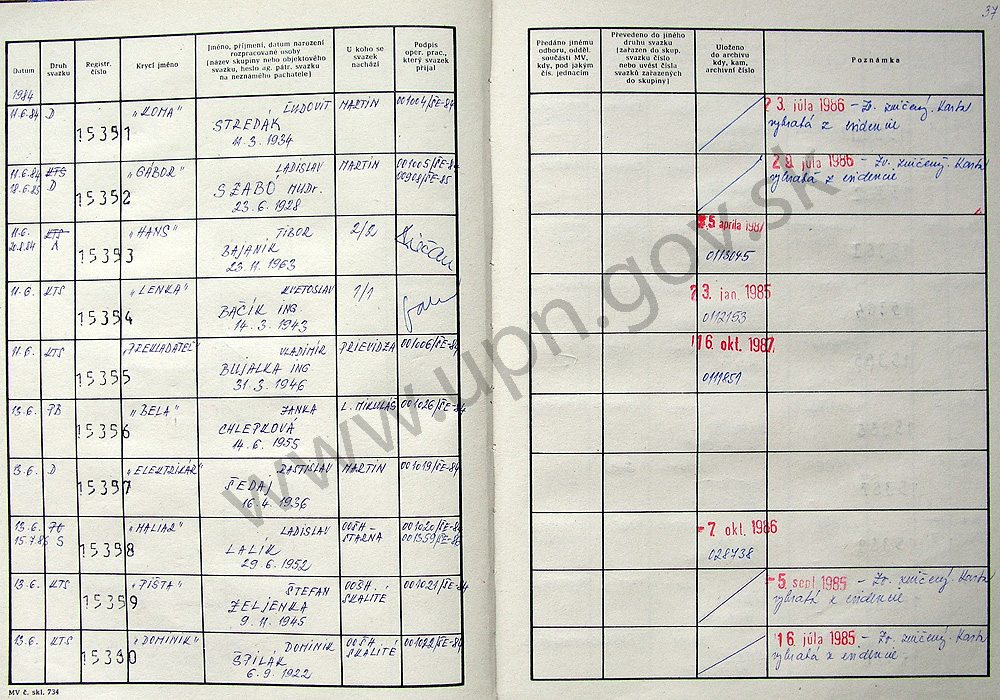 37
Datum
Druh
svazku
Registr.
číslo
Krycí jméno
Jméno, příjmení, datum narození
rozpracované osoby
(název skupiny nebo objektového
svazku, heslo ag. pátr. svazku
na neznámého pachatele)
U koho se
svazek
nachází
Podpis
oper. prac.,
který svazek
přijal
Předáno jinému
odboru, odděl.
součásti MV,
kdy, pod jakým
čís. jednacím
Převedeno do jiného
druhu svazku
(zařazen do skup.
svazku číslo
nebo uvést čísla
svazků zařazených
do skupiny)
Uloženo
do archivu
kdy, kam,
archivní číslo
Poznámka
1984
11.6.84 D 15351 "KOMA" ĽUDOVÍT MARTIN 001004/ŠE-84
STREĎAK
11.3.1934
3. júla 1986 - Zv. zničený. Karta
vybratá z evidencie
11.6.84 KTS 15352 "GÁBOR" LADISLAV MARTIN 001005/ŠE-84
D SZABO MUDr. 00908/ŠE-85
23.6.1928
júla 1986 - Zv. zničený. Karta
vybratá z evidencie
11.6. KTS 15353 "HANS" TIBOR 2/2
A BAJANÍK
23.11.1963
apríla 1987
0113045
11.6. KTS 15354 "LENKA" KVETOSLAV 1/1
BAČÍK ING
14.3.1943
3. jan. 1985
0112153
11.6. KTS 15355 "PREKLADATEĽ" VLADIMÍR PRIEVIDZA 001006/ŠE-84
BUJALKA ING
31.3.1946
16. okt. 1987
0111851
13.6. PB 15356 "BELA" JANKA L. MIKULÁŠ 001026/ŠE-84
CHLEPKOVÁ
14.6.1955
13.6. D 15357 "ELEKTRIKÁR" RASTISLAV MARTIN 001019/ŠE-84
ŠEDAJ
16.4.1936
13.6. 15358 "MALIAR" LADISLAV OOŠH- 001020/ŠE-84
15.7.86 S LALÍK STARNA 001359/ŠE-86
29.6.1952
-7. okt. 1986
028738
13.6. KTS 15359 "PIŠTA" ŠTEFAN OOŠH. 001021/ŠE-84
ZELJENKA SKALITÉ
9.11.1945
-5. sept. 1985 - Zv. zničený. Karta
vybratá z evidencie
13.6. KTS 15360 "DOMINIK" DOMINIK OOŠH. 001022/ŠE-84
ŠPILÁK SKALITÉ
6.9.1922
16. júla 1985 - Zv. zničený. Karta
vybratá z evidencie.
MV č. skl. 734
www.upn.gov.sk